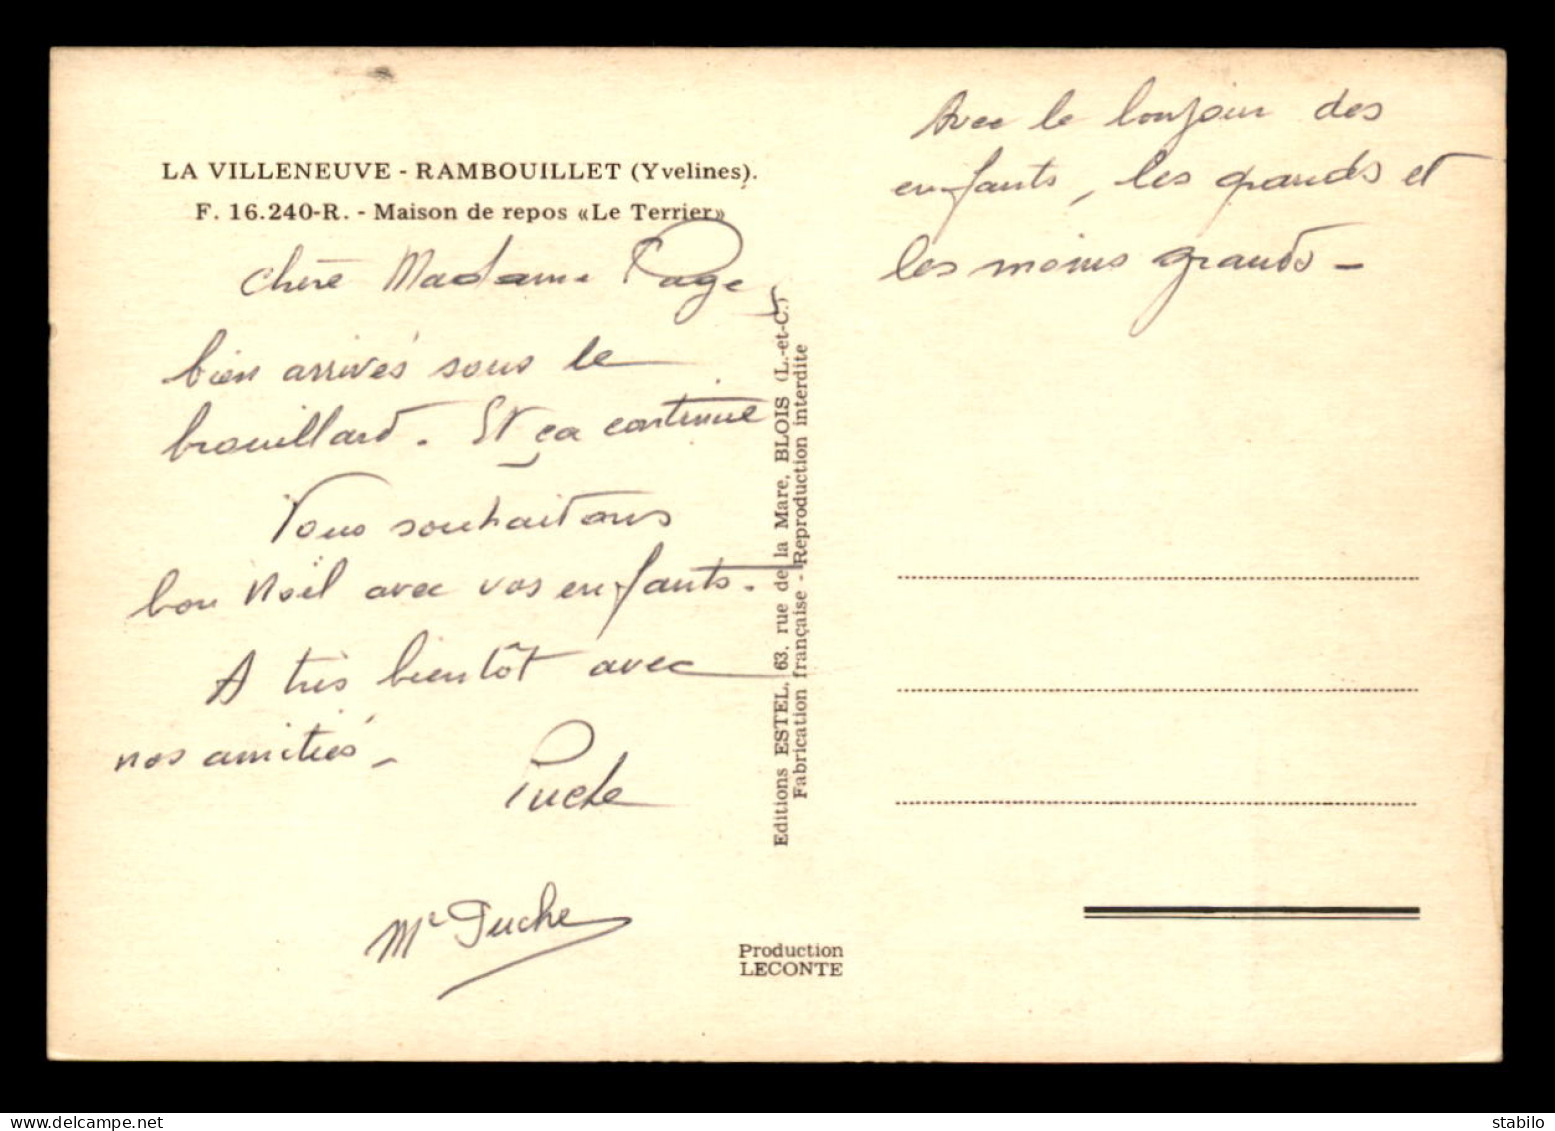 LA VILLENEUVE - RAMBOUILLET (Yvelines).
F. 16.240-R. - Maison de repos «Le Terrier»
Chère Madame Page,
bien arrivés sous le
brouillard. Et ça continue
Vous souhaitons
bon Noël avec vos enfants.
A très bientôt avec
nos amitiés -
Puche
Mr Puche
Avec le bonjour des
enfants, les grands et
les moins grands -
Editions ESTEL, 63, rue de la Mare, BLOIS (L.-et-C.)
Fabrication française - Reproduction interdite
Production
LECONTE
delcampe.net
stabilo